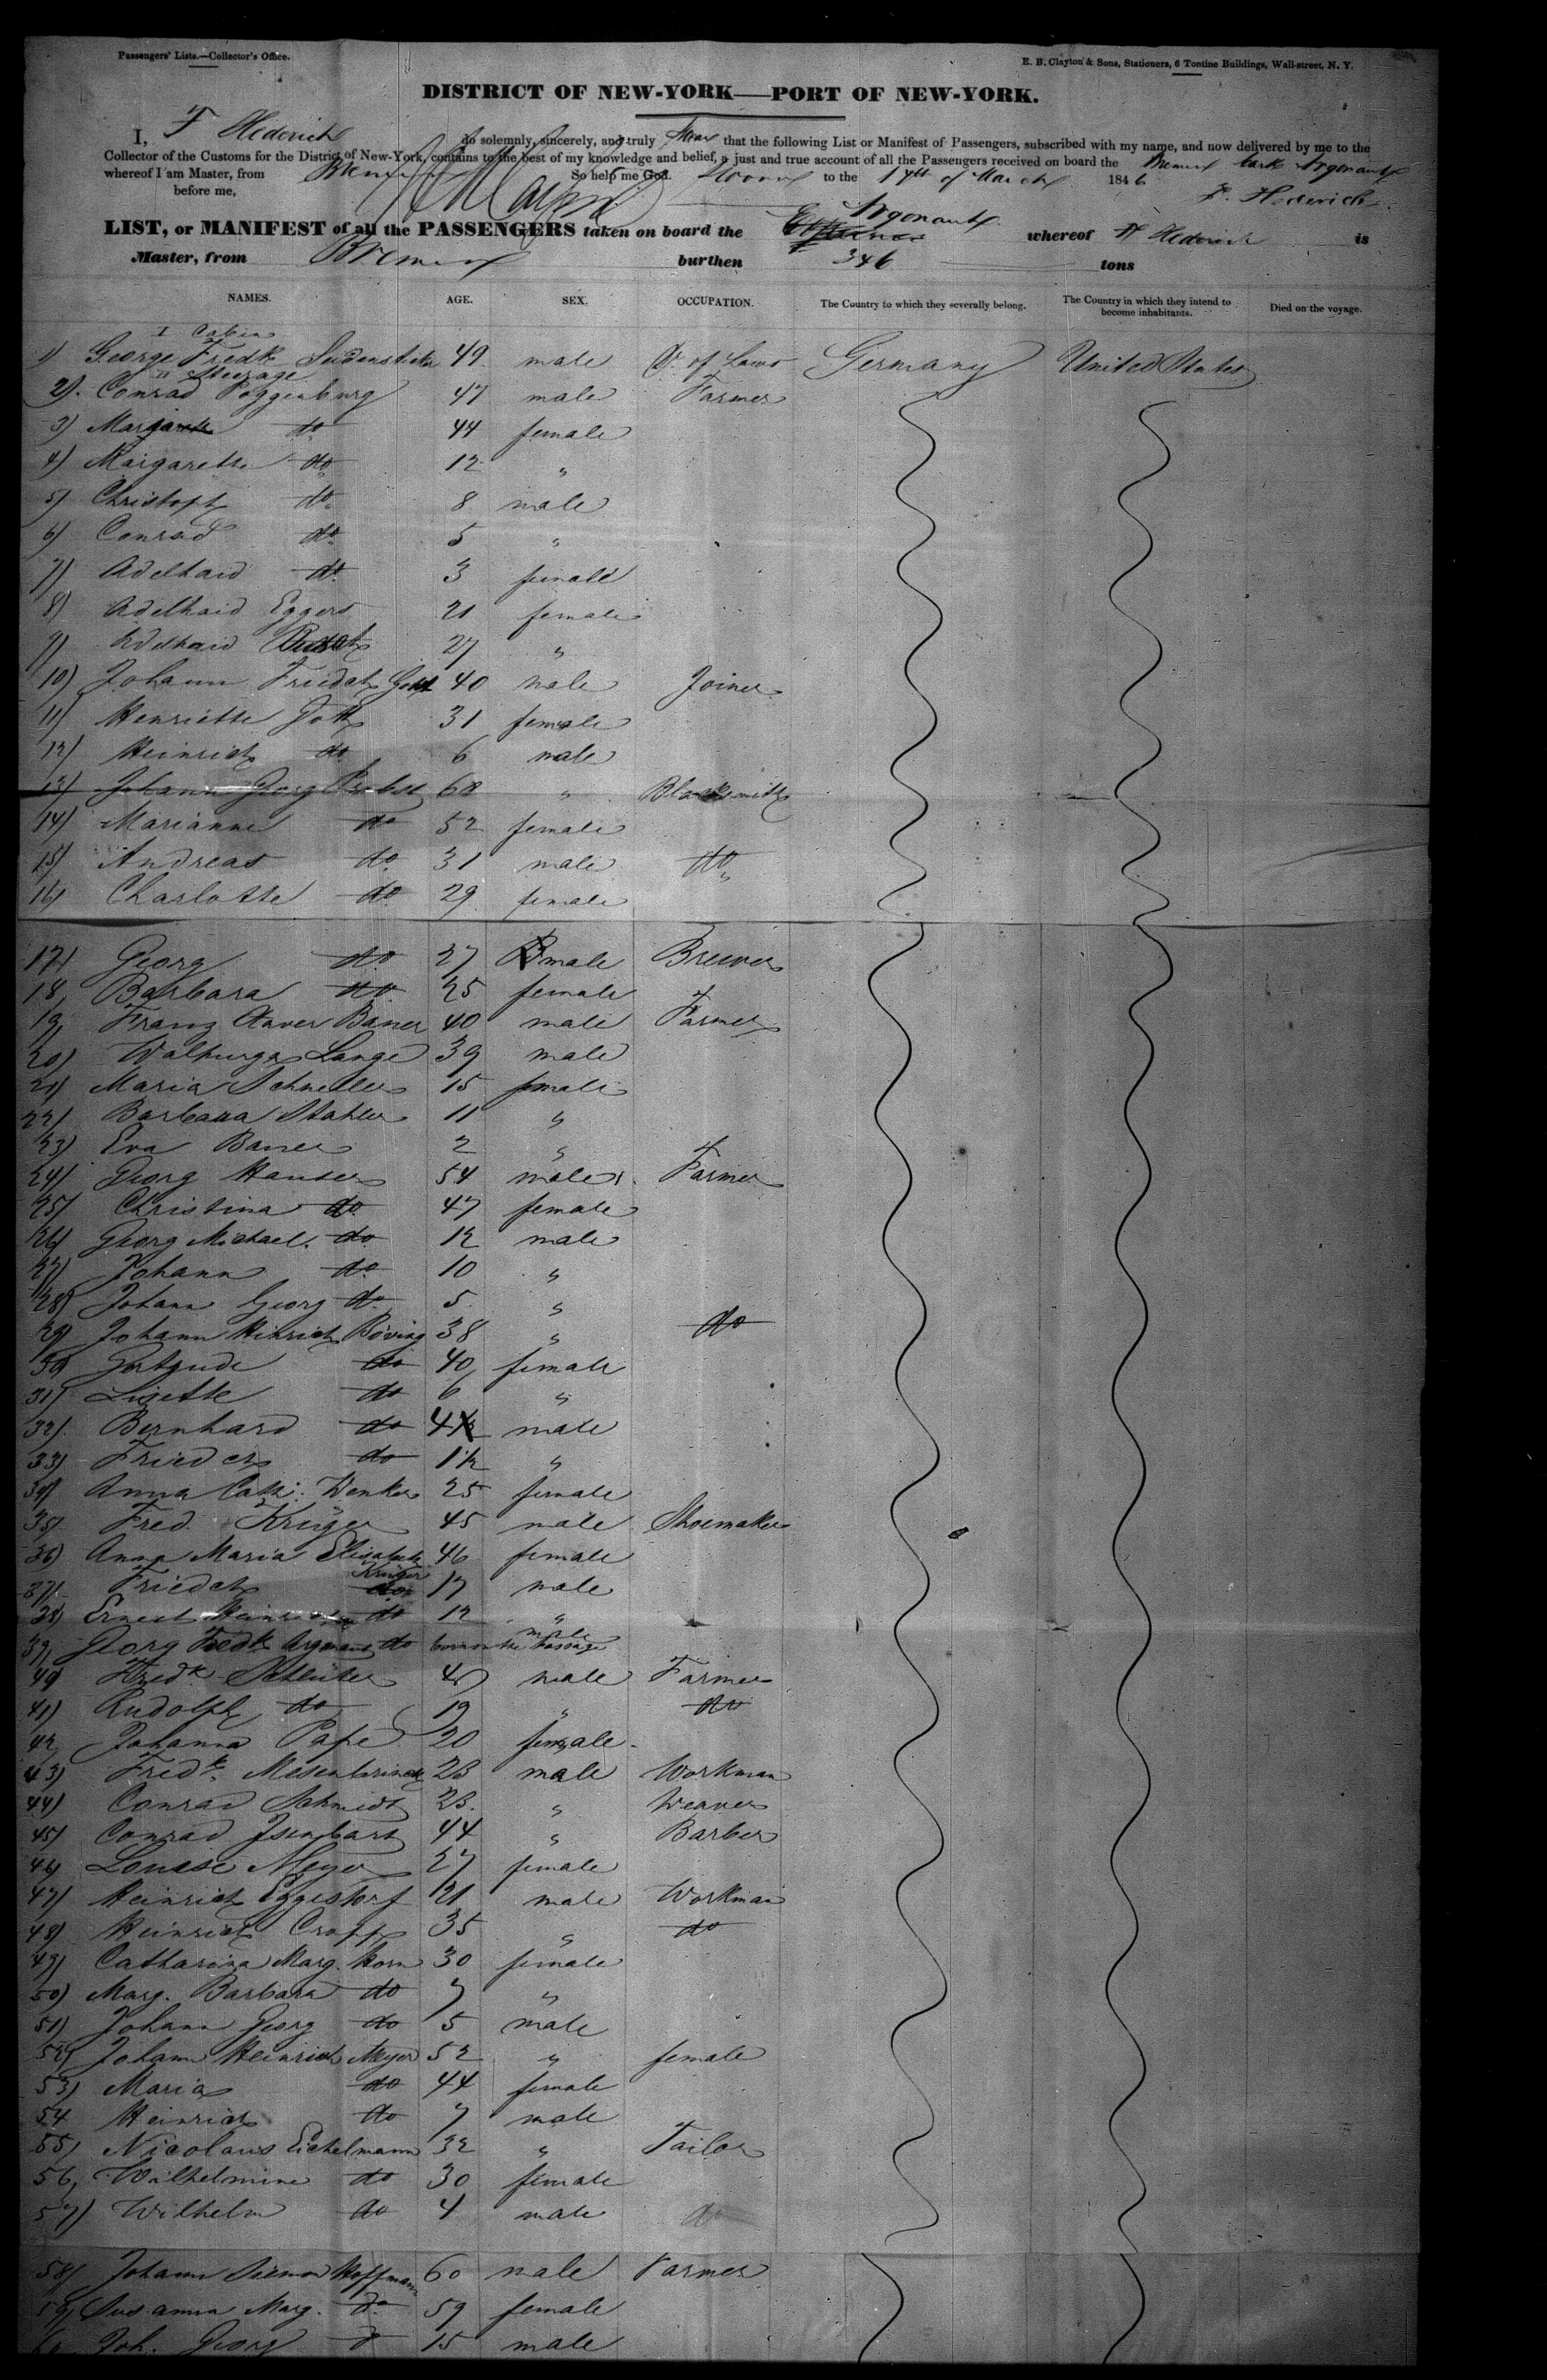 Passengers' Lists.—Collector's Office.
E. B. Clayton & Sons, Stationers, 6 Tontine Buildings, Wall-street, N. Y.
DISTRICT OF NEW-YORK—PORT OF NEW-YORK.
I, F Hederich do solemnly, sincerely, and truly Swear that the following List or Manifest of Passengers, subscribed with my name, and now delivered by me to the
Collector of the Customs for the District of New-York, contains to the best of my knowledge and belief, a just and true account of all the Passengers received on board the Bremen bark Argonaut
whereof I am Master, from Bremen So help me God. Sworn to the 17th of March 1846
before me, F. Hederich
LIST, or MANIFEST of all the PASSENGERS taken on board the Argonaut whereof F Hederich is
Master, from Bremen burthen 346 tons
NAMES. AGE. SEX. OCCUPATION. The Country to which they severally belong. The Country in which they intend to become inhabitants. Died on the voyage.
I Cabin
1) George Fredk Seidensticker 49 male Dr of Laws Germany United States
" Steerage
2). Conrad Poggenburg 47 male Farmer
3) Margarethe do 44 female
4) Margarethe do 12 "
5) Christoph do 8 male
6) Conrad do 5 "
7) Adelhaid do 3 female
8) Adelhaid Eggers 21 female
9) Adelhaid 27 "
10) Johann Friedch 40 male Joiner
11) Henriette 31 female
12) Heinrich do 6 male
13) Johann Georg Probst 68 " Blacksmith
14) Marianne do 52 female
15) Andreas do 31 male do "
16) Charlotte do 29 female
17) Georg do 27 male Brewer
18, Barbara do 25 female
19, Franz Xaver Baner 40 male Farmer
20) Walburga Lange 39 male
21) Maria Schneller 15 female
22) Barbara Stahler 11 "
23) Eva Baner 2 "
24) Georg Hauser 54 male Farmer
25) Christina do 47 female
26) Georg Michael do 12 male
27) Johann do 10 "
28) Johann Georg do 5 "
29) Johann Hinrich Böving 38 " do
30) Gertrude do 40, female
31) Lisette do 6 "
32). Bernhard do 4 male
33) Friedch do 1½ "
34) Anna Cath. Wenker 25 female
35) Fred. Krüger 45 male Shoemaker
36) Anna Maria Elisabeth Krüger 46 female
37) Friedch do 17 male
38) Ernest Heinrich do 12 "
39, Georg Fredk Argonaut do born on the passage male
40 Fredk Schlüter male Farmer
41) Rudolph do 19 " do
42 Johanna Pape 20 female
43) Fredk. Mesenbrinck 28 male Workman
44) Conrad Schmidt 23. " Weaver
45) Conrad Isenbart 44 " Barber
46) Louise Meyer 27 female
47) Heinrich Eggestorf 21 male Workman
48) Heinrich Cropp 35 " do
49) Catharina Marg. Korn 30 female
50) Marg. Barbara do 7 "
51) Johann Georg do 5 male
52) Johann Heinrich Meyer 52 " female
53) Maria do 44 female
54 Heinrich do 7 male
55) Nicolaus Eichelmann 32 " Tailor
56, Wilhelmine do 30 female
57) Wilhelm do 4 male do
58) Johann Simon Hoffmann 60 male Farmer
59) Susanna Marg. do 59 female
60 Joh. Georg do 15 male